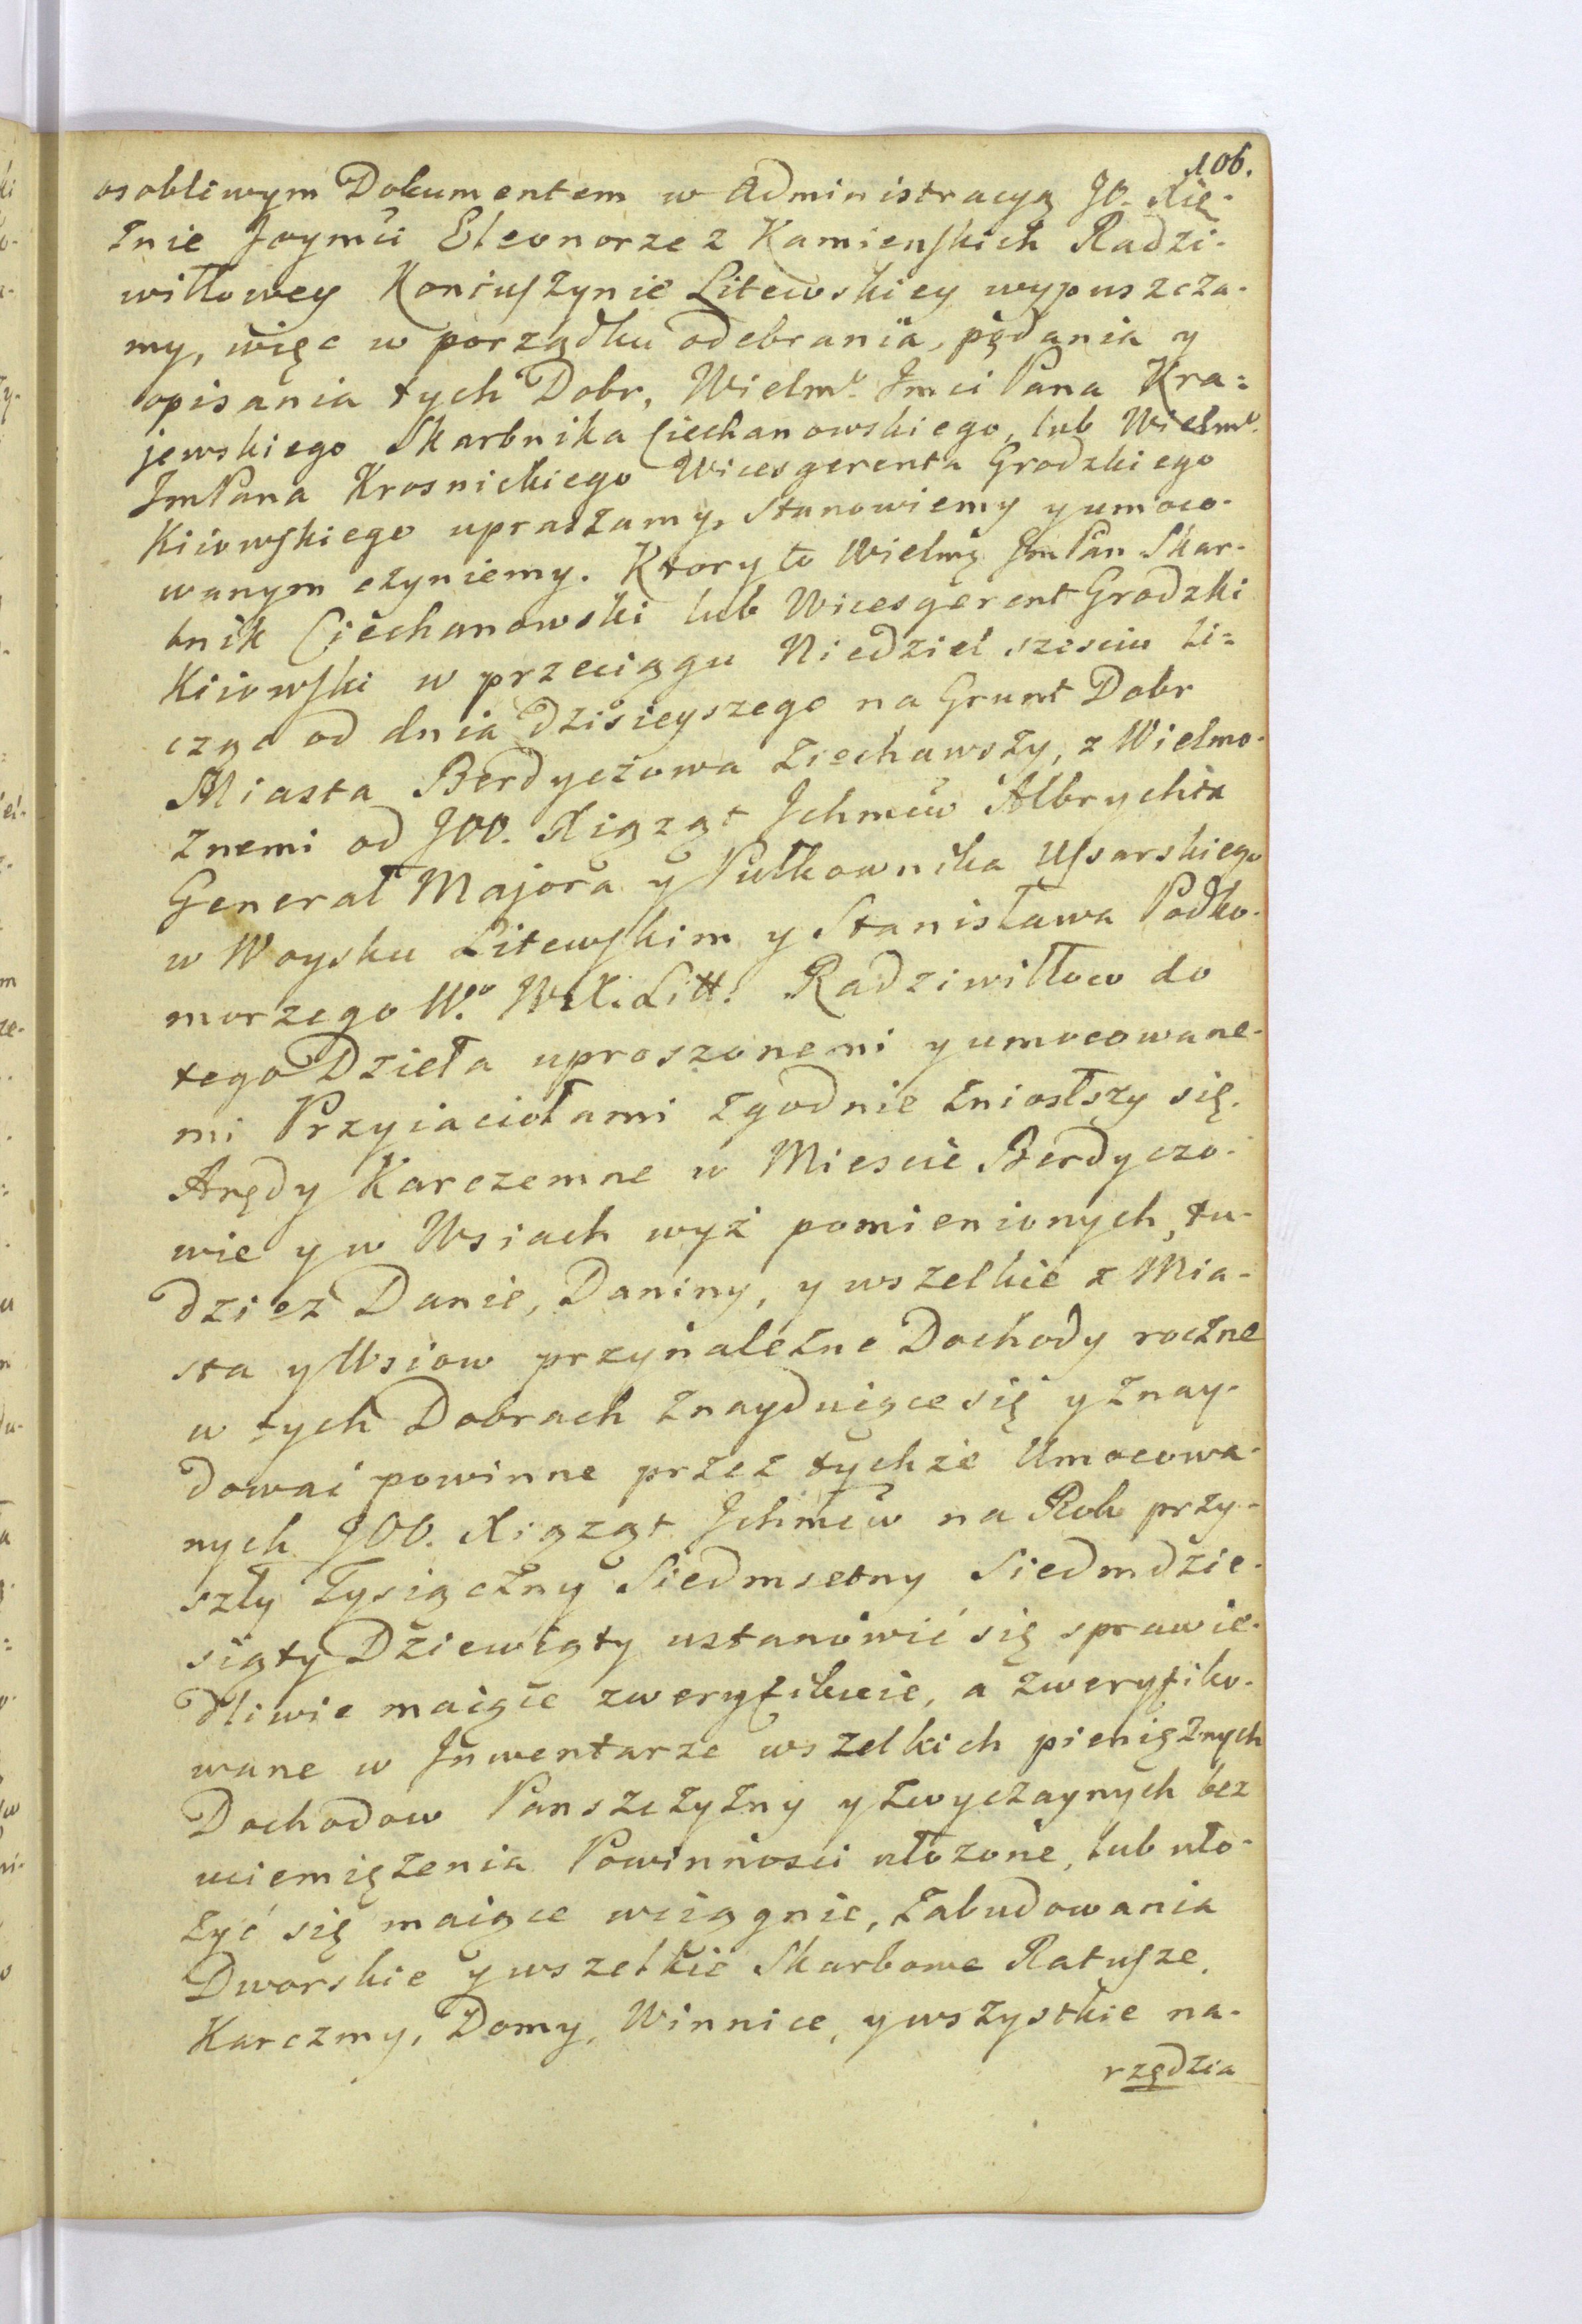 106.
osobliwym Dokumentem w Administracyą JO. Xię-
żnie Jeymći Eleonorze z Kamienskich Radzi-
wiłłowey Koniuszynie Litewskiey wypuszcza-
my, więc w porządku odebrania, podania y
opisania tych Dobr, Wielmo Jmci Pana Kra=
jewskiego Skarbnika Ciechanowskiego, lub Wielmo
JmPana Krosnickiego Wicesgerenta Grodzkiego
Kiiowskiego upraszamy, stanowiemy y umoco-
wanym czyniemy. Ktory to Wielmy JmPan Skar-
bnik Ciechanowski lub Wicesgerent Grodzki
Kiiowski w przeciągu Niedziel szesciu li=
cząc od dnia dzisieyszego na Grunt Dobr
Miasta Berdyczowa ziechawszy, z Wielmo-
żnemi od JOO. Xiążąt Jchmćiw Albrychta
Generał Majora y Pułkownika Ussarskiego
w Woysku Litewskim y Stanisława Podko-
morzego W.o W.X.Litt: Radziwiłłow do
tego Dzieła uproszonemi y umocowane-
mi Przyiaciołami zgodnie zniosłszy się.
Arędy Karczemne w Miescie Berdyczo-
wie y w Wsiach wyż pomienionych, tu-
dziez Danie, Daniny, y wszelkie z Mia-
sta y Wsiow przynależne Dochody roczne
w tych Dobrach znayduiące się y znay-
dować powinne przez tychże Umocowa-
nych JOO. Xiążąt Jchmćiw na Rok przy-
szły Tysiączny Siedmsetny Siedmdzie-
siąty Dziewiąty ustanowić się sprawie-
dliwie maiące zweryfikuie, a zweryfiko-
wane w Jnwentarze wszelkich pieniężnych
Dochodow Panszczyżny y zwyczaynych bez
uciemiężenia Powinnosci ułożone, lub uło-
żyć się maiące wciągnie, zabudowania
Dworskie y wszelkie Skarbowe Ratusze,
Karczmy, Domy, Winnice, y wszystkie na-
rzędzia